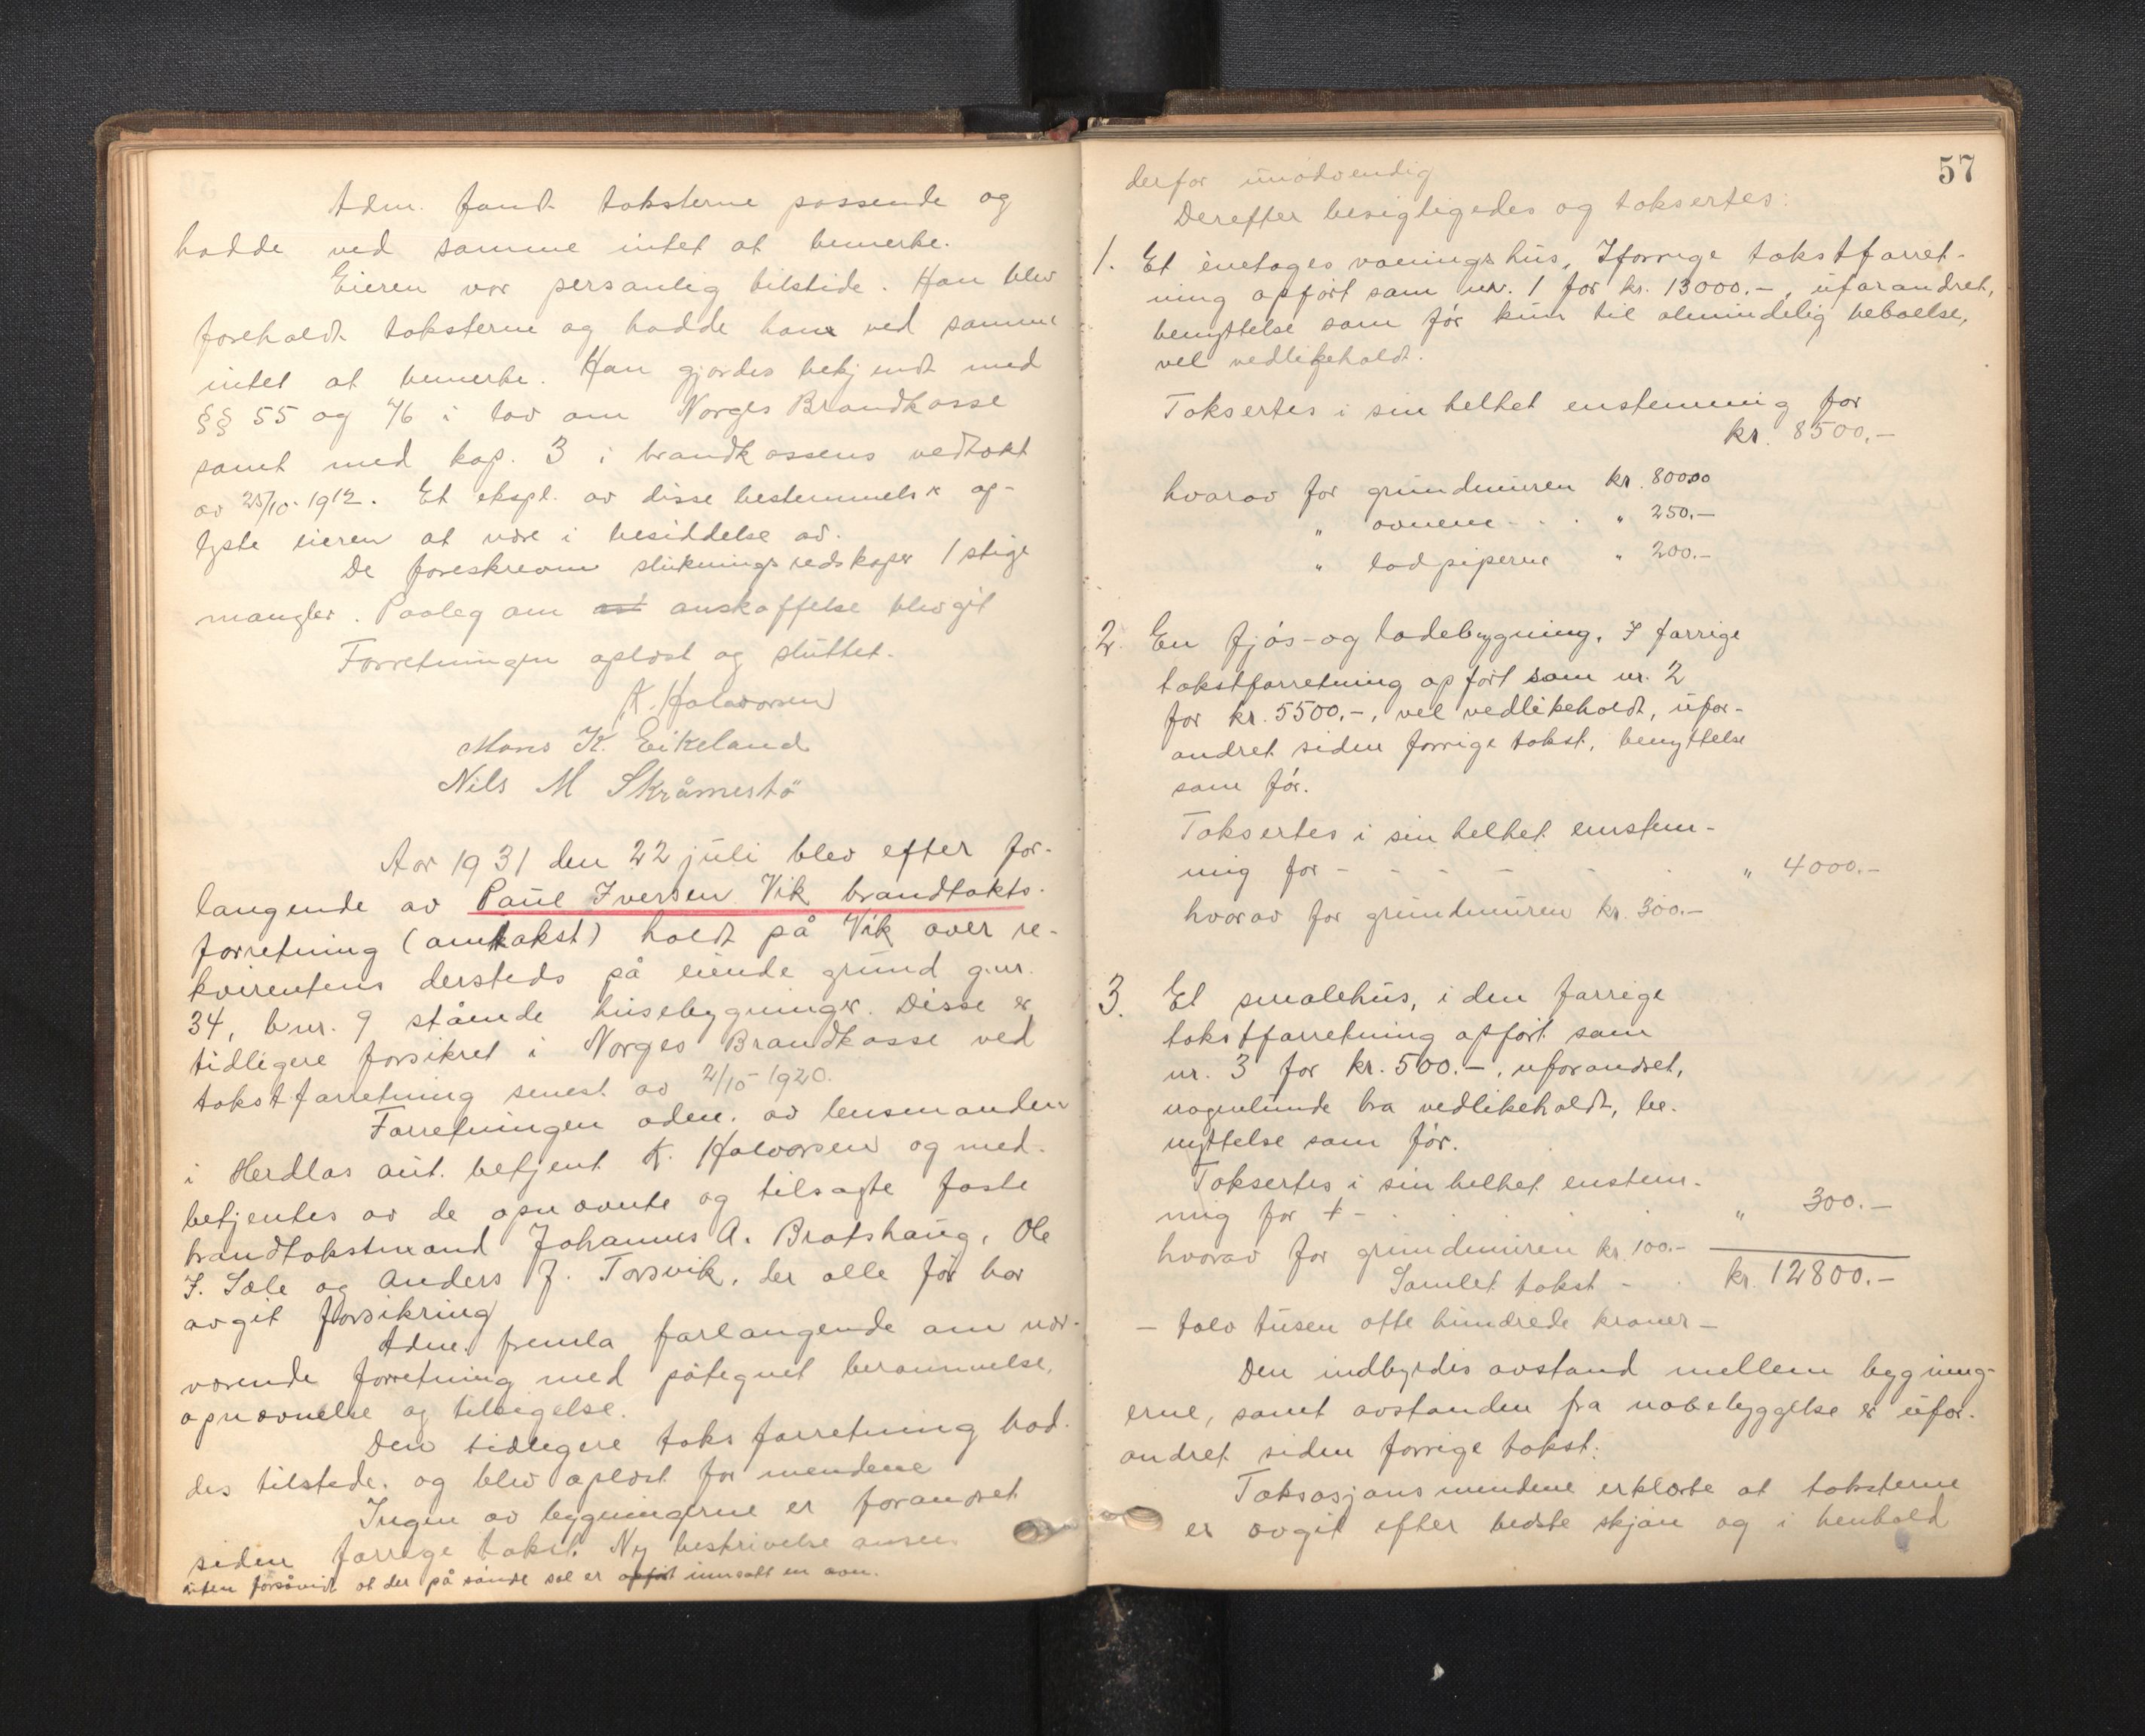 Adm. fandt taksterne passende og
hadde ved samme intet at bemerke.
Eieren var personlig tilstede. Han blev
foreholdt taksterne og hadde han ved samme
intet at bemerke. Han gjordes bekjendt med
§§ 55 og 76 i lov om Norges Brandkasse
samt med kap. 3 i brandkassens vedtækt
av 25/10-1912. Et ekspl. av disse bestemmelser op-
lyste eieren at være i besiddelse av.
De foreskrevne slukningsredskaper 1 stige
mangler. Paaleg om anskaffelse blev git
Forretningen oplæst og sluttet.
K. Halvorsen
Hans K. Eikeland
Nils M Skråmestö
Aar 1931 den 22 juli blev efter for-
langende av Paul Iversen Vik brandtakts-
forretning (omtakst) holdt på Vik over re-
kvirentens dersteds på eiende grund g.nr.
34, b.nr. 9 stående husebygninger. Disse er
tidligere forsikret i Norges Brandkasse ved
takstforretning senest av 2/10-1920.
Forretningen adm. av lensmanden
i Herdlas aut. betjent K. Halvorsen og med-
betjentes av de opnævnte og tilsagte faste
brandtakstmænd Johannes A. Bratshaug, Ole
J. Sæle og Anders J. Torsvik, der alle før har
avgit forsikring
Adm. fremla forlangende om nær-
værende forretning med påtegnet berammelse,
opnævnelse og tilsigelse.
Den tidligere taksforretning had-
des tilstede. og blev oplæst for mendene
Ingen av bygningerne er forandret
siden forrige takst. Ny beskrivelse ansees
uten forsåvidt at der på søndre sal er opført innsatt en ovn.
57
derfor unødvendig
Derefter besigtigedes og taksertes:
1. Et énetages vaaningshus, I forrige takstforret-
ning opført som nr. 1 for kr. 13000.-, uforandret,
benyttelse som før kun til almindelig beboelse,
vel vedlikeholdt.
Taksertes i sin helhet enstemmig for
kr. 8500,-
hvorav for grundmuren kr. 800.00
" ovnene - . . " 250.-
" lodpiperne " 200.-
2. En fjøs- og ladebygning. I forrige
takstforretning opført som nr. 2
for kr. 5500,-, vel vedlikeholdt, ufor-
andret siden forrige takst, benyttelse
som før.
Taksertes i sin helhet enstem-
mig for - - - - - - " 4000.-
hvorav for grundmuren kr. 300.-
3. Et smalehus, i den forrige
takstforretning opført som
nr. 3 for kr. 500.-, uforandret,
nogenlunde bra vedlikeholdt, be-
nyttelse som før.
Taksertes i sin helhet enstem-
mig for - . . . . " 300.-
hvorav for grundmuren kr. 100.-
Samlet takst - . kr. 12800.-
- tolv tusen otte hundrede kroner -
Den indbyrdes avstand mellem bygning-
erne, samt avstanden fra nabebyggelse er ufor-
andret siden forrige takst.
Taksasjonsmendene erklærte at taksterne
er avgit efter bedste skjøn og i henhold